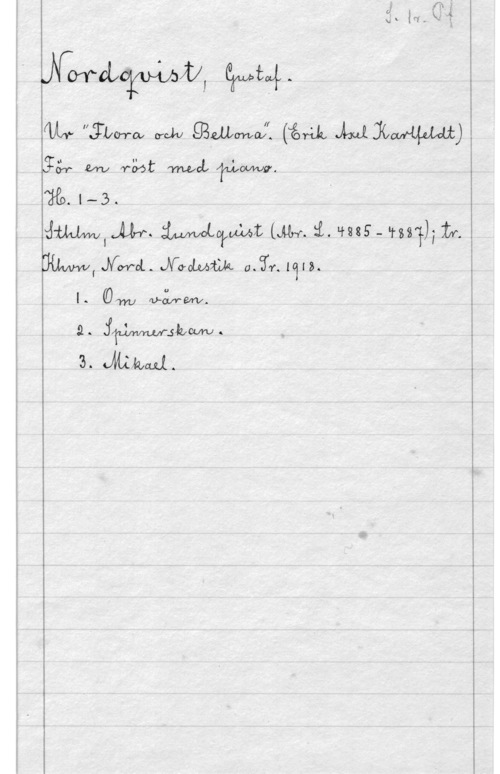 S. 1r. Pf
Nordqvist, Gustaf.
Ur "Flora och Bellona". (Erik Axel Karlfeldt)
För en röst med piano.
H. 1-3.
Sthlm, Abr. Lundquist (Abr. L. 4885-4887); tr.
Khvn, Nord. Nodestik o. Tr. 1918.
1. Om våren.
2. Spinnerskan.
3. Mikael.